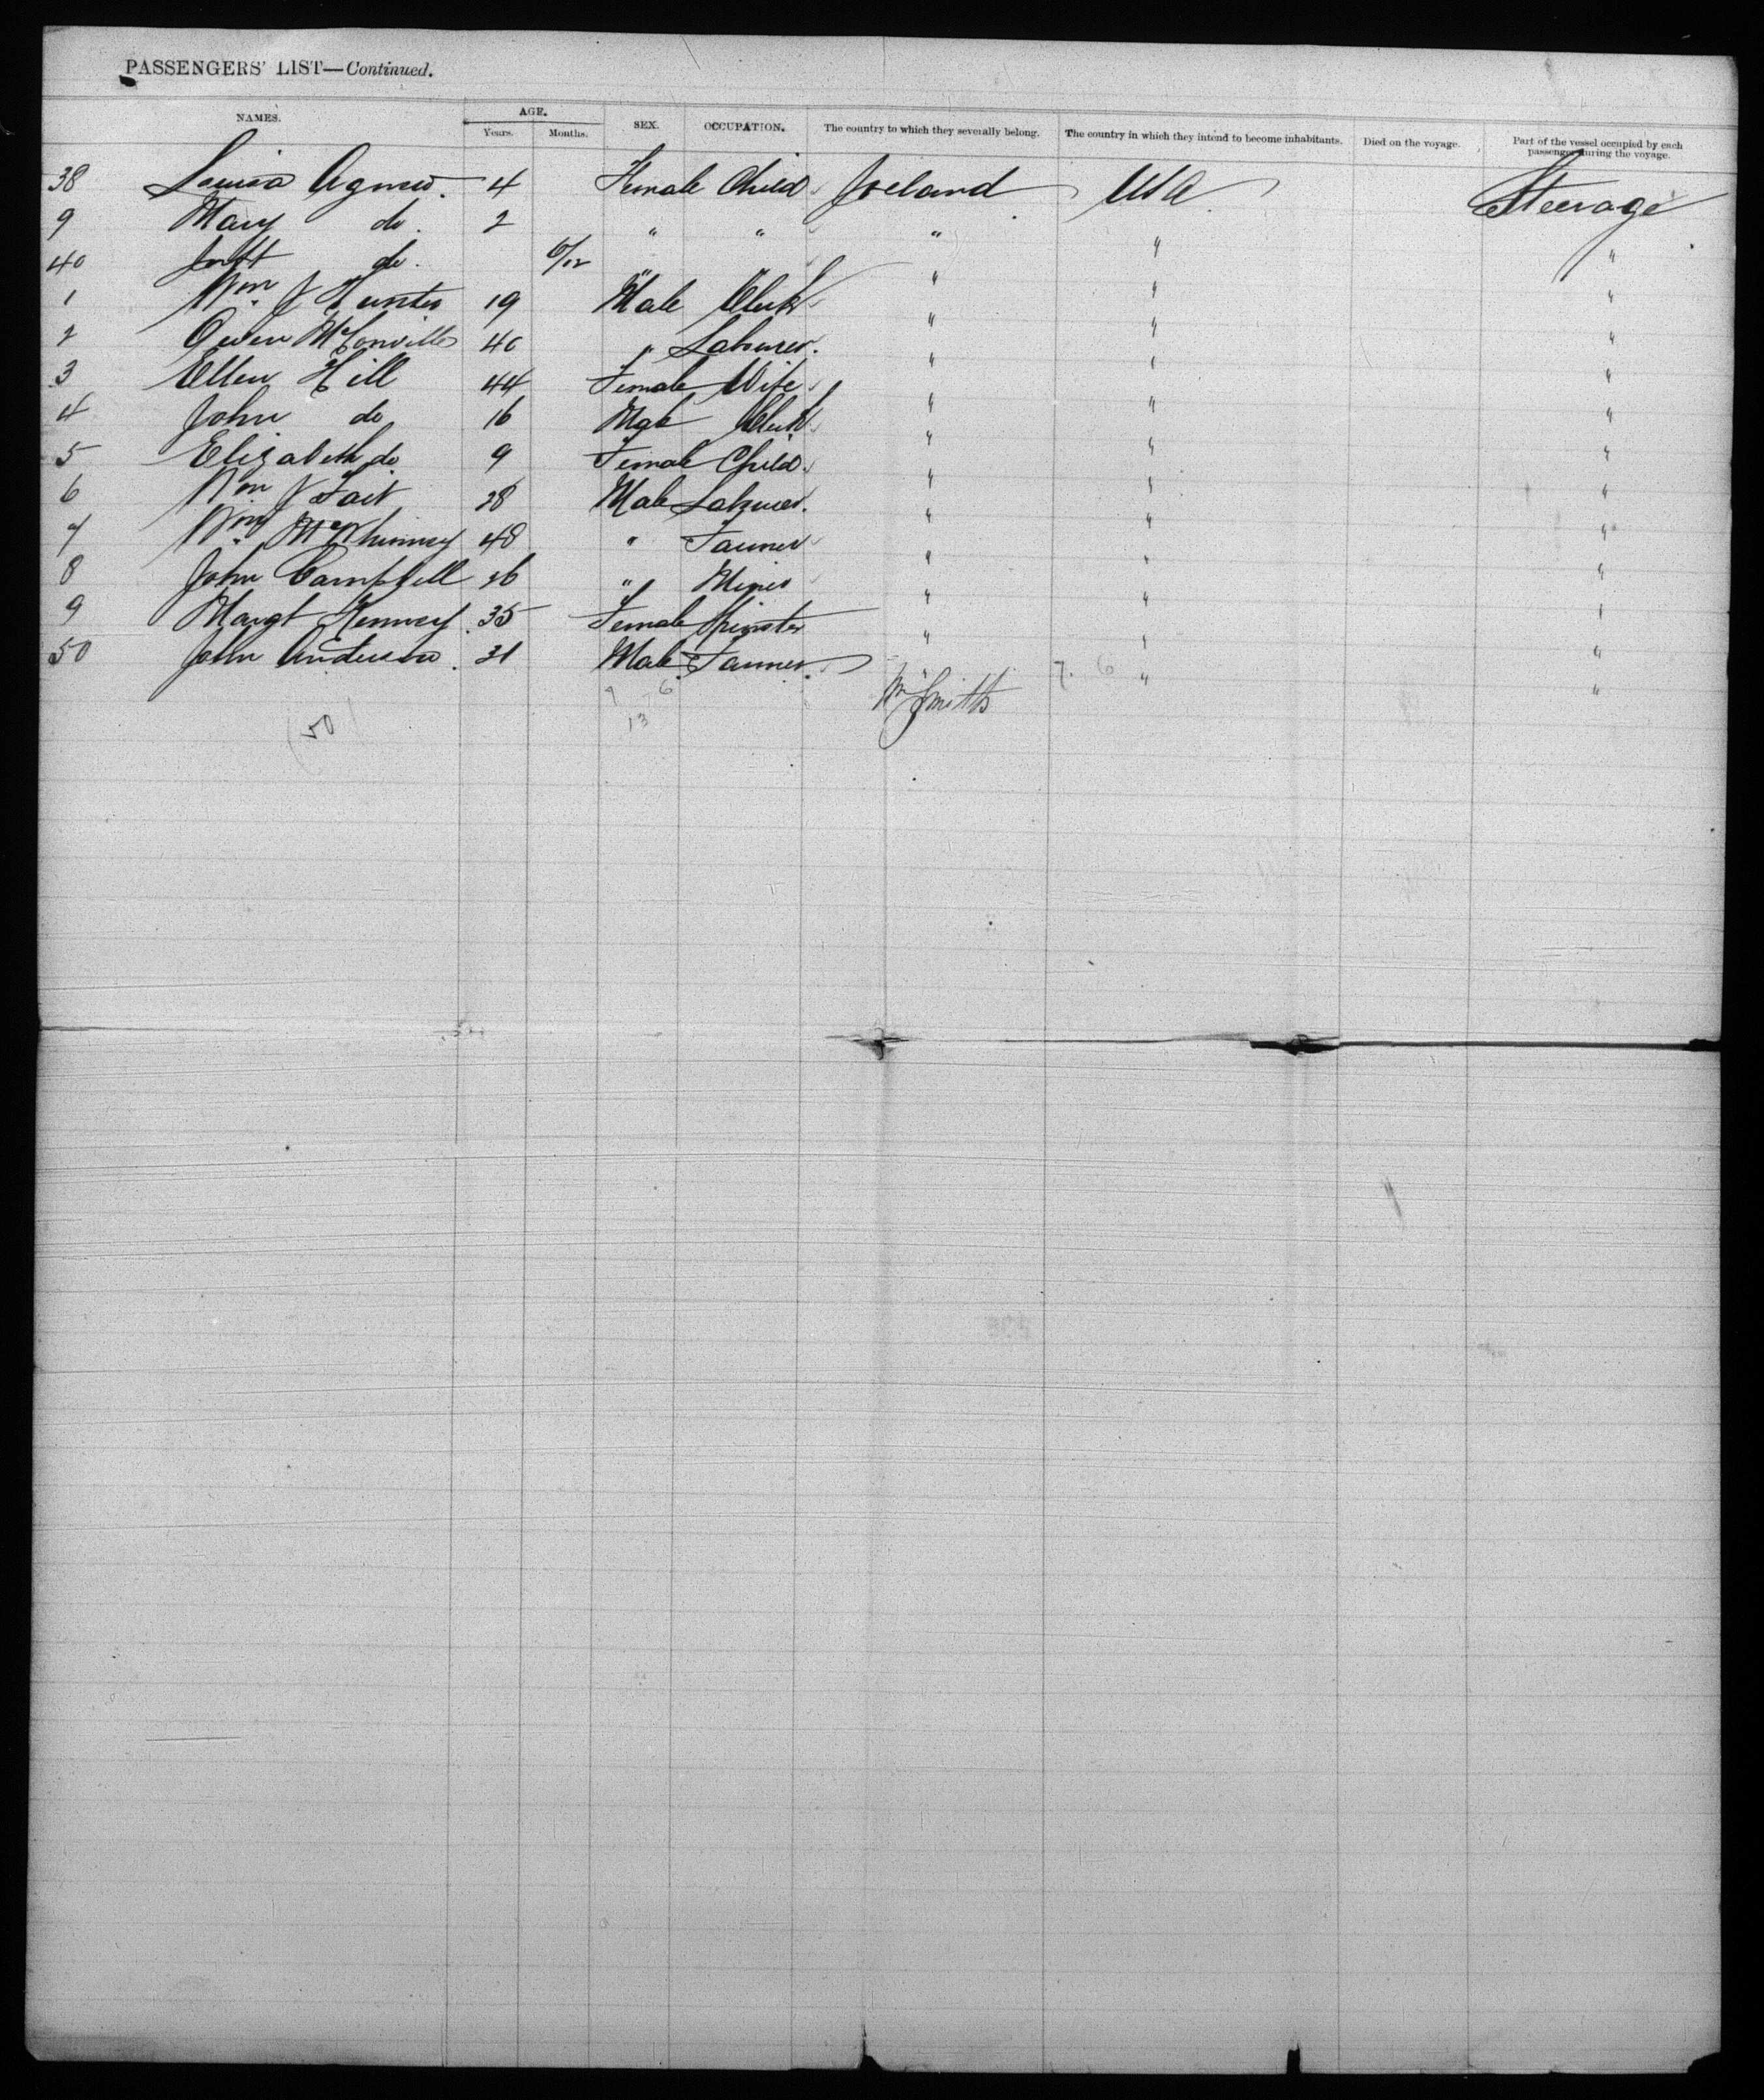 PASSENGERS' LIST—Continued.
NAMES. AGE. Years. Months. SEX. OCCUPATION. The country to which they severally belong. The country in which they intend to become inhabitants. Died on the voyage. Part of the vessel occupied by each passenger during the voyage.
38 Louisa Agnew. 4 Female Child Ireland USA Steerage
9 Mary do. 2 " " " " "
40 do. 6/12 " " " " "
1 Wm J Hunter 19 Male Clerk " " "
2 Owen McConville 40 " Labourer. " " "
3 Ellen Hill 44 Female Wife " " "
4 John do 16 Male Clerk " " "
5 Elizabeth do. 9 Female Child. " " "
6 Wm J Tait 28 Male Labourer. " " "
7 Wm McWhinney 48 " Farmer " " "
8 John Campbell 26 " Miner " " "
9 Margt Kenney 35 Female Spinster " " "
50 John Anderson. 31 Male Farmer. " " "
6 Wm Smith 7. 6
50 13